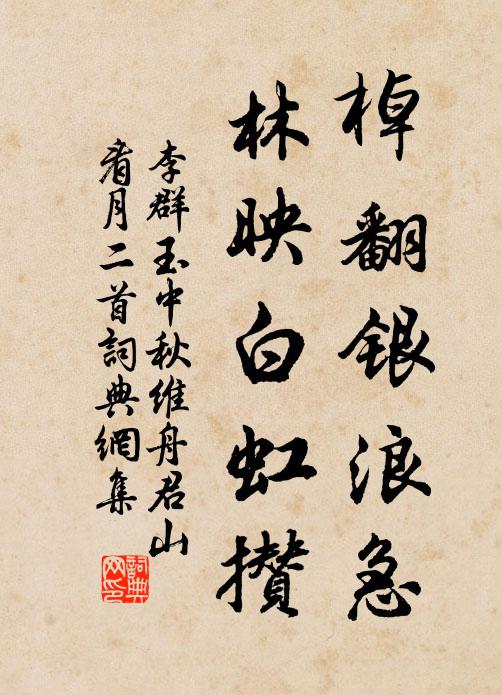 棹翻銀浪急
林映白虹攢
李群玉中秋維舟君山
看月二首詞典網集
詞典网印